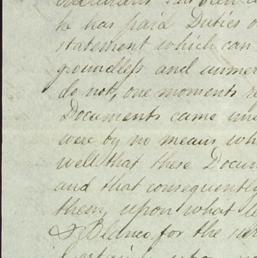 he has paid Duties o
statement which can
groundless and unmer
do not, one moments re
Documents came un
were by no means wh
well that these Docum
and that consequently
them, upon what le
for the ser